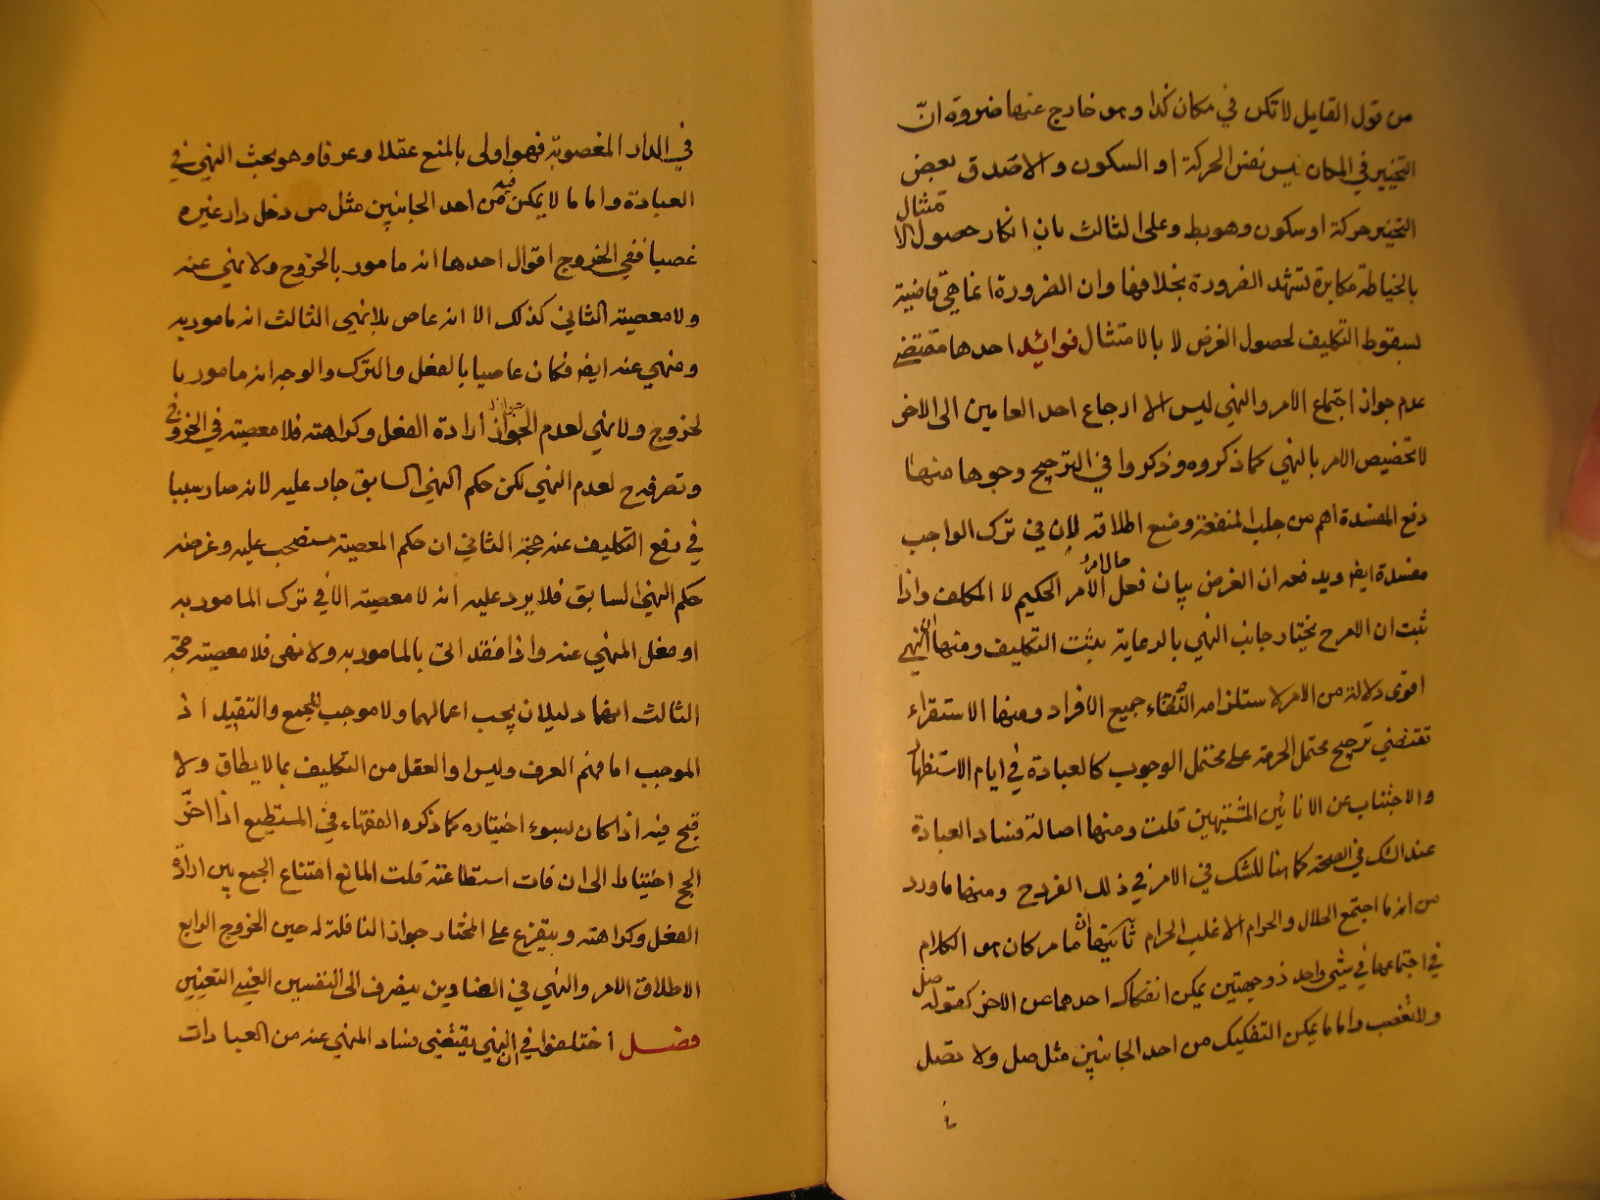 من قول القايل لا تكن في مكان كذا وهو خارج عنها ضرورة انّ
التحيّز في المكان ليس نفس الحركة او السكون والا صدق بعض
التحيز حركة او سكون وهو بط وعلى الثالث بان انكار حصول الامتثال
بالخياطة مكابرة تشهد الضرورة بخلافها وان الضرورة انما هي قاضية
لسقوط التكليف لحصول الغرض لا بالامتثال فوائد احدها مقتضى
عدم جواز اجتماع الامر والنهي ليس الا ارجاع احد العامين الى الاخر
لا تخصيص الامر بالنهي كما ذكروه وذكروا في الترجيح وجوها منها
دفع المفسدة اهم من جلب المنفعة وضع اطلاقه لان في ترك الواجب
مفسدة ايض ويدفعه ان الغرض بيان فعل الآمر الحكيم لا المكلف واذا
ثبت ان الامر ح يختار جانب النهي بالرعاية يثبت التكليف ومنها ان النهي
اقوى دلالة من الامر لاستلزامه انتفاء جميع الافراد ومنها الاستقراء
تقتضي ترجيح محتمل الحرمة على محتمل الوجوب كالعبادة في ايام الاستظهار
والاجتناب عن الانائين المشتبهين قلت ومنها اصالة فساد العبادة
عند الشك في الصحة كما هنا للشك في الامر في ذلك الفرد ح ومنها ما ورد
من انه ما اجتمع الحلال والحرام الا غلب الحرام ثانيها ان ما مر كان هو الكلام
في اجتماعهما في شيء واحد ذو جهتين يمكن انفكاك احدهما عن الاخر كقوله صل
ولا تغصب واما ما يمكن التفكيك من احد الجانبين مثل صل ولا تصل
في
في الدار المغصوبة فهو اولى بالمنع عقلا وعرفا وهو بحث النهي في
العبادة واما ما لا يمكن فيه من احد الجانبين مثل من دخل دار غيره
غصبا ففي الخروج اقوال احدها انه مامور بالخروج ولا نهي عنه
ولا معصية الثاني كذلك الا انه عاص بلا نهي الثالث انه مامور به
ومنهي عنه ايض فكان عاصيا بالفعل والترك والوجه انه مامور با
لخروج ولا نهي لعدم الجواز ارادة الفعل وكراهته فلا معصية في الخروج
وتصرفه ح لعدم النهي لكن حكم النهي السابق جار عليه لانه صار سببا
في رفع التكليف عنه حجة الثاني ان حكم المعصية مستصحب عليه وغرضه
حكم النهي السابق فلا يرد عليه انه لا معصية الا في ترك المامور به
او فعل المنهي عنه واذا فقد اتى بالمامور به ولا نهى فلا معصية حجة
الثالث انهما دليلان يجب اعمالهما ولا موجب للجمع والتقييد اذ
الموجب اما فهم العرف وليس او العقل من التكليف بما لا يطاق ولا
قبح فيه اذا كان بسوء اختياره كما ذكره الفقهاء في المستطيع اذا اخّر
الحج اختيارا الى ان فات استطاعته قلت المانع امتناع الجمع بين ارادة
الفعل وكراهته ويتفرع على المختار جواز النافلة له حين الخروج الرابع
الاطلاق الامر والنهي في العناوين ينصرف الى النفسيين العينيين التعيينيين
فصل اختلفوا في ان النهي يقتضي فساد المنهي عنه من العبادات